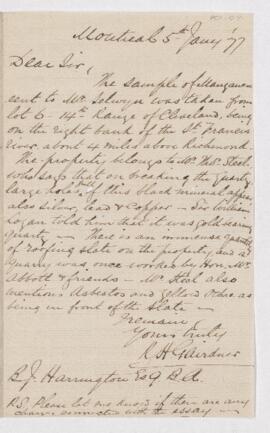 Montreal 5th Jany '77
Dear Sir,
The sample of Manganese
sent to Mr. Selwyn was taken from
lot 6 - 14th Range of Cleveland, being
on the right bank of the St. Francis
river about 4 miles above Richmond.
The property belongs to Mr. Thos. Steel
who says that on breaking the quartz
large holes full of this black mineral appear
also silver, lead & Copper - Sir William
Logan told him that it was gold bearing
quartz - There is an immense quantity
of roofing slate on the property, and a
Quarry was once worked by Hon. Mr.
Abbott & friends - Mr. Steel also
mentions Asbestos and yellow Ochre as
being in front of the Slate -
I remain
Yours truly
R. H. Gairdner
B. J. Harrington Esq B.A.
P.S. Please let me know if there are any
charges connected with the assay -